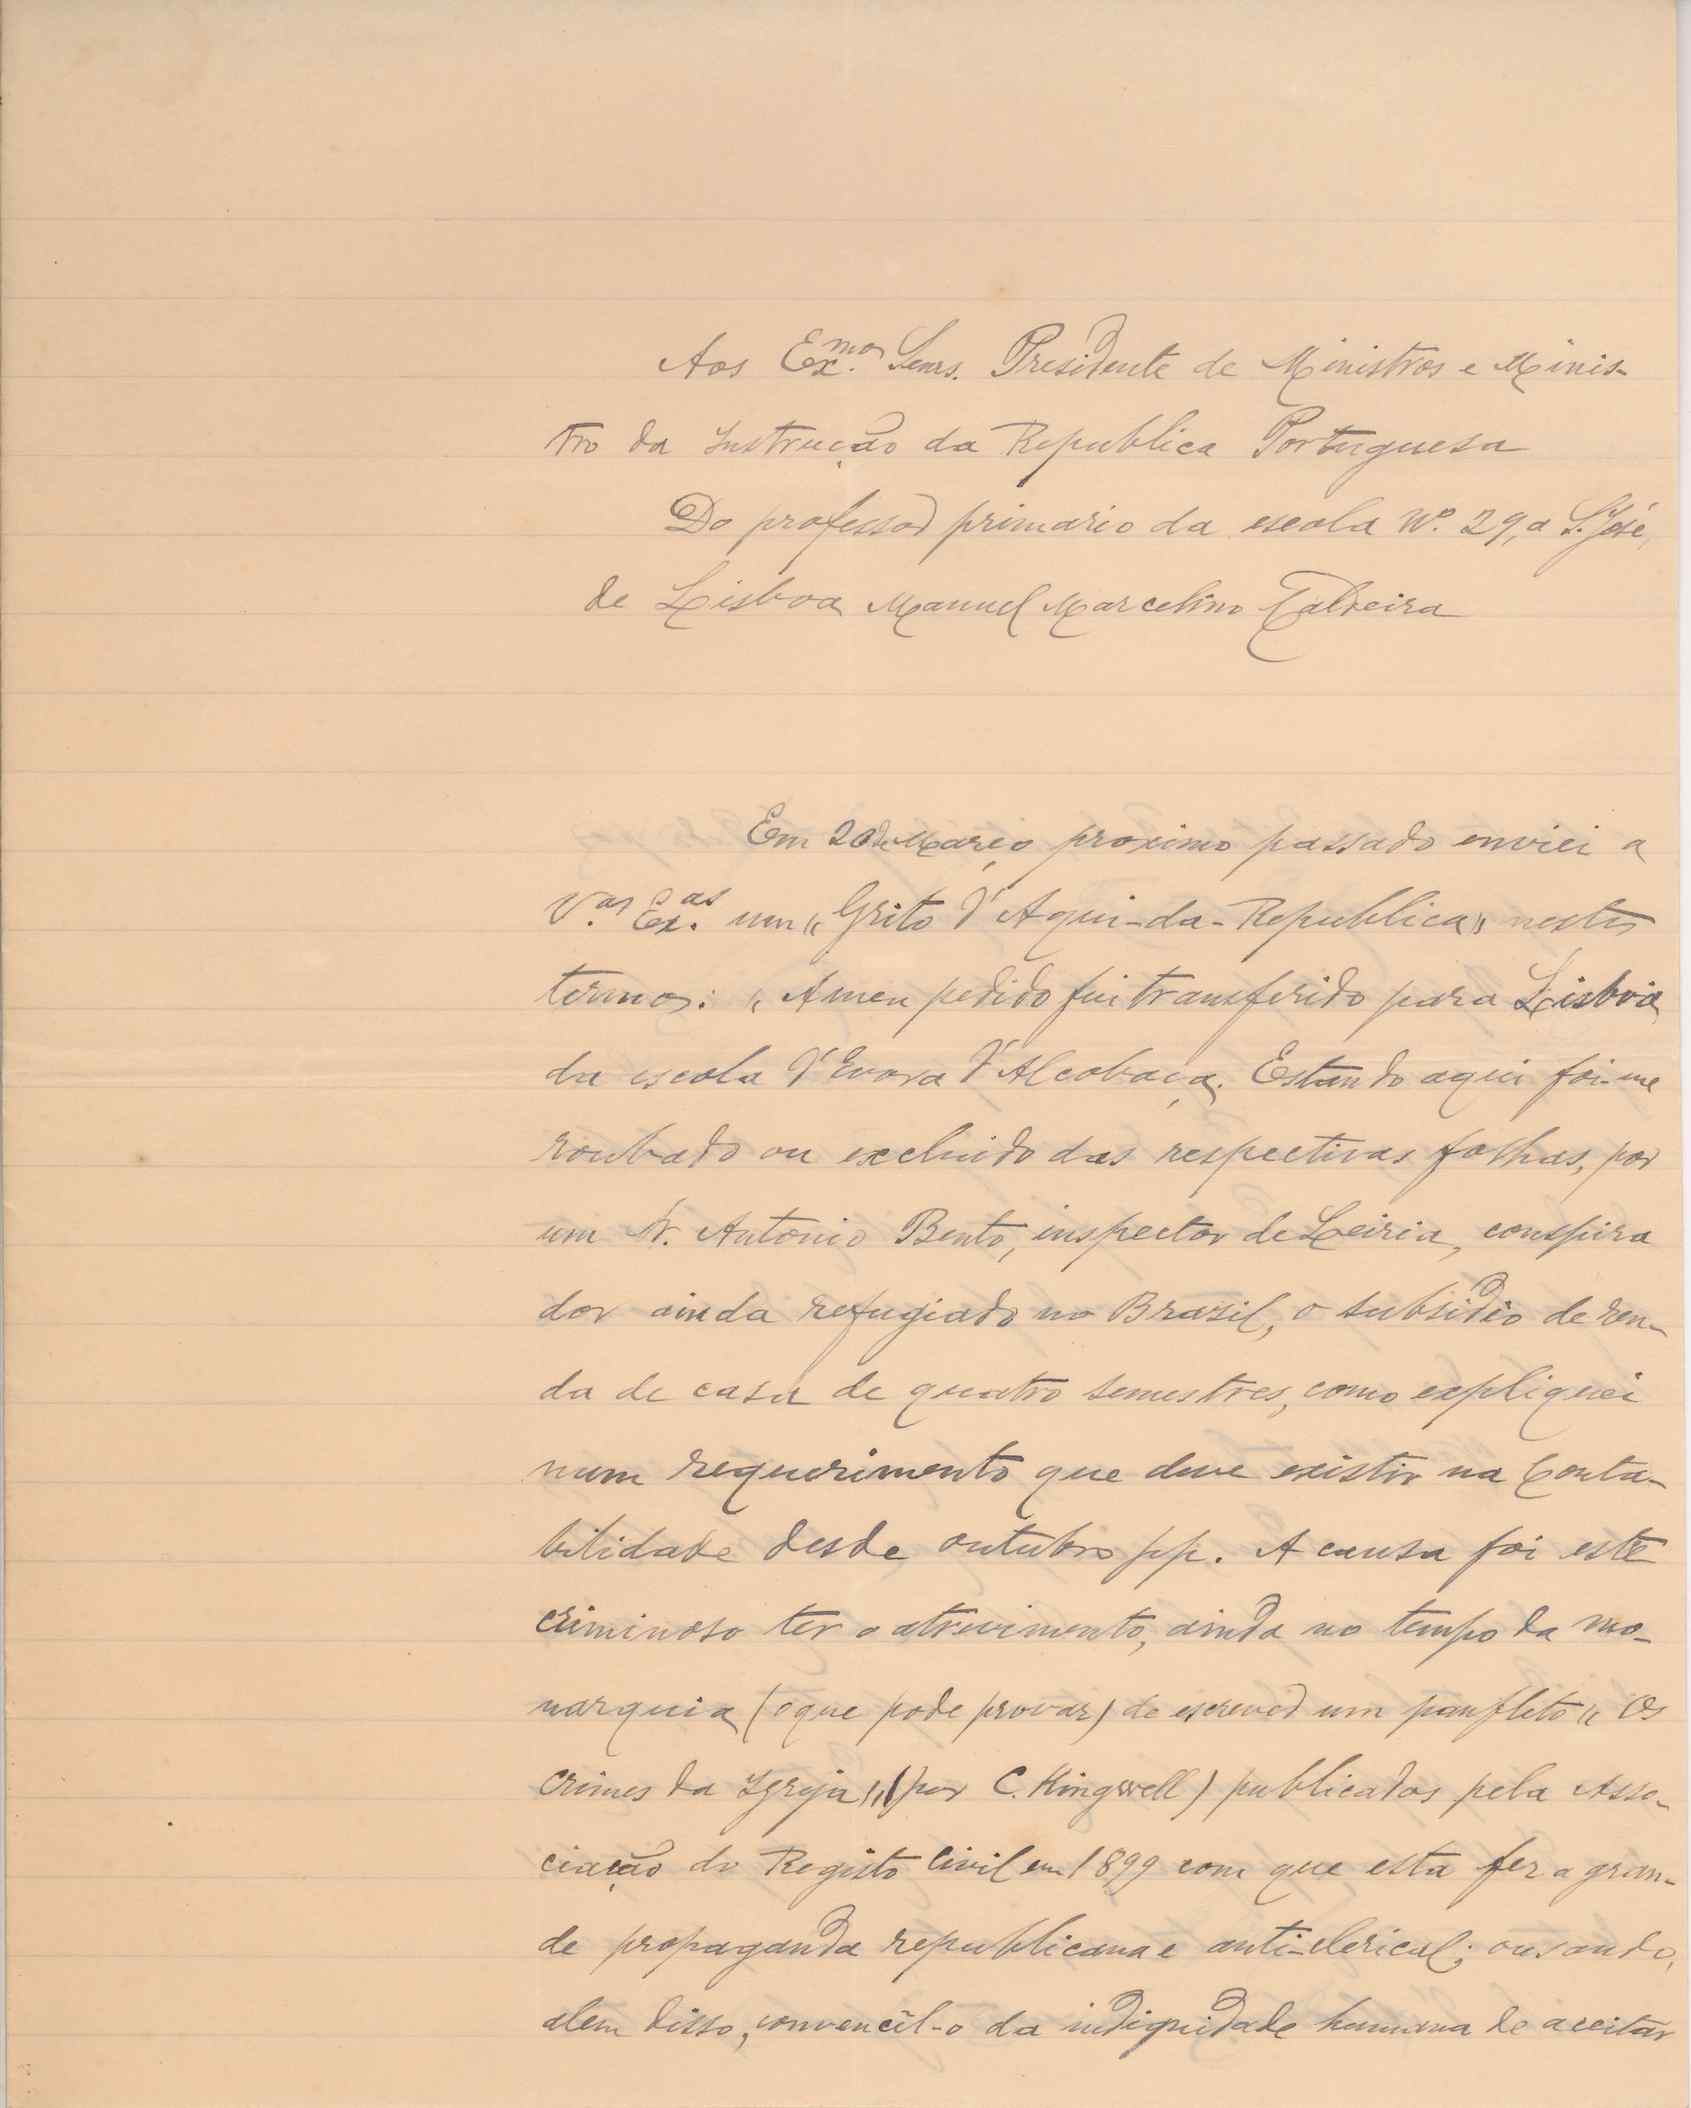 Aos Ex.mos Senrs. Presidente de Ministros e Minis-
tro da Instrucção da Republica Portuguesa
Do professor primario da escola Nº. 29, a S. José,
de Lisboa Manuel Marcelino
Em 20 de Março proximo passado enviei a
V.as Ex.as um "Grito d'Aqui-da-Republica" nestes
termos: "A meu pedido fui transferido para Lisboa
da escola d'Evora d'Alcobaça. Estando aqui foi-me
roubado ou excluido das respectivas folhas, por
um Sr. Antonio Bento, inspector de Leiria, conspira
dor ainda refugiado no Brazil, o subsidio de ren-
da de casa de quatro semestres, como expliquei
num requerimento que deve existir na Conta-
bilidade desde outubro pp. A causa foi este
criminoso ter o atrevimento, ainda no tempo da mo-
narquia (o que pode provar) de escrever um panfleto "Os
crimes da Igreja" (por C. Kingwell) publicados pela Asso-
ciação do Registo Civil em 1899 com que esta fez a gran-
de propaganda republicana e anti-clerical; ousando,
alem disso, convencêl-o da indignidade humana de aceitar